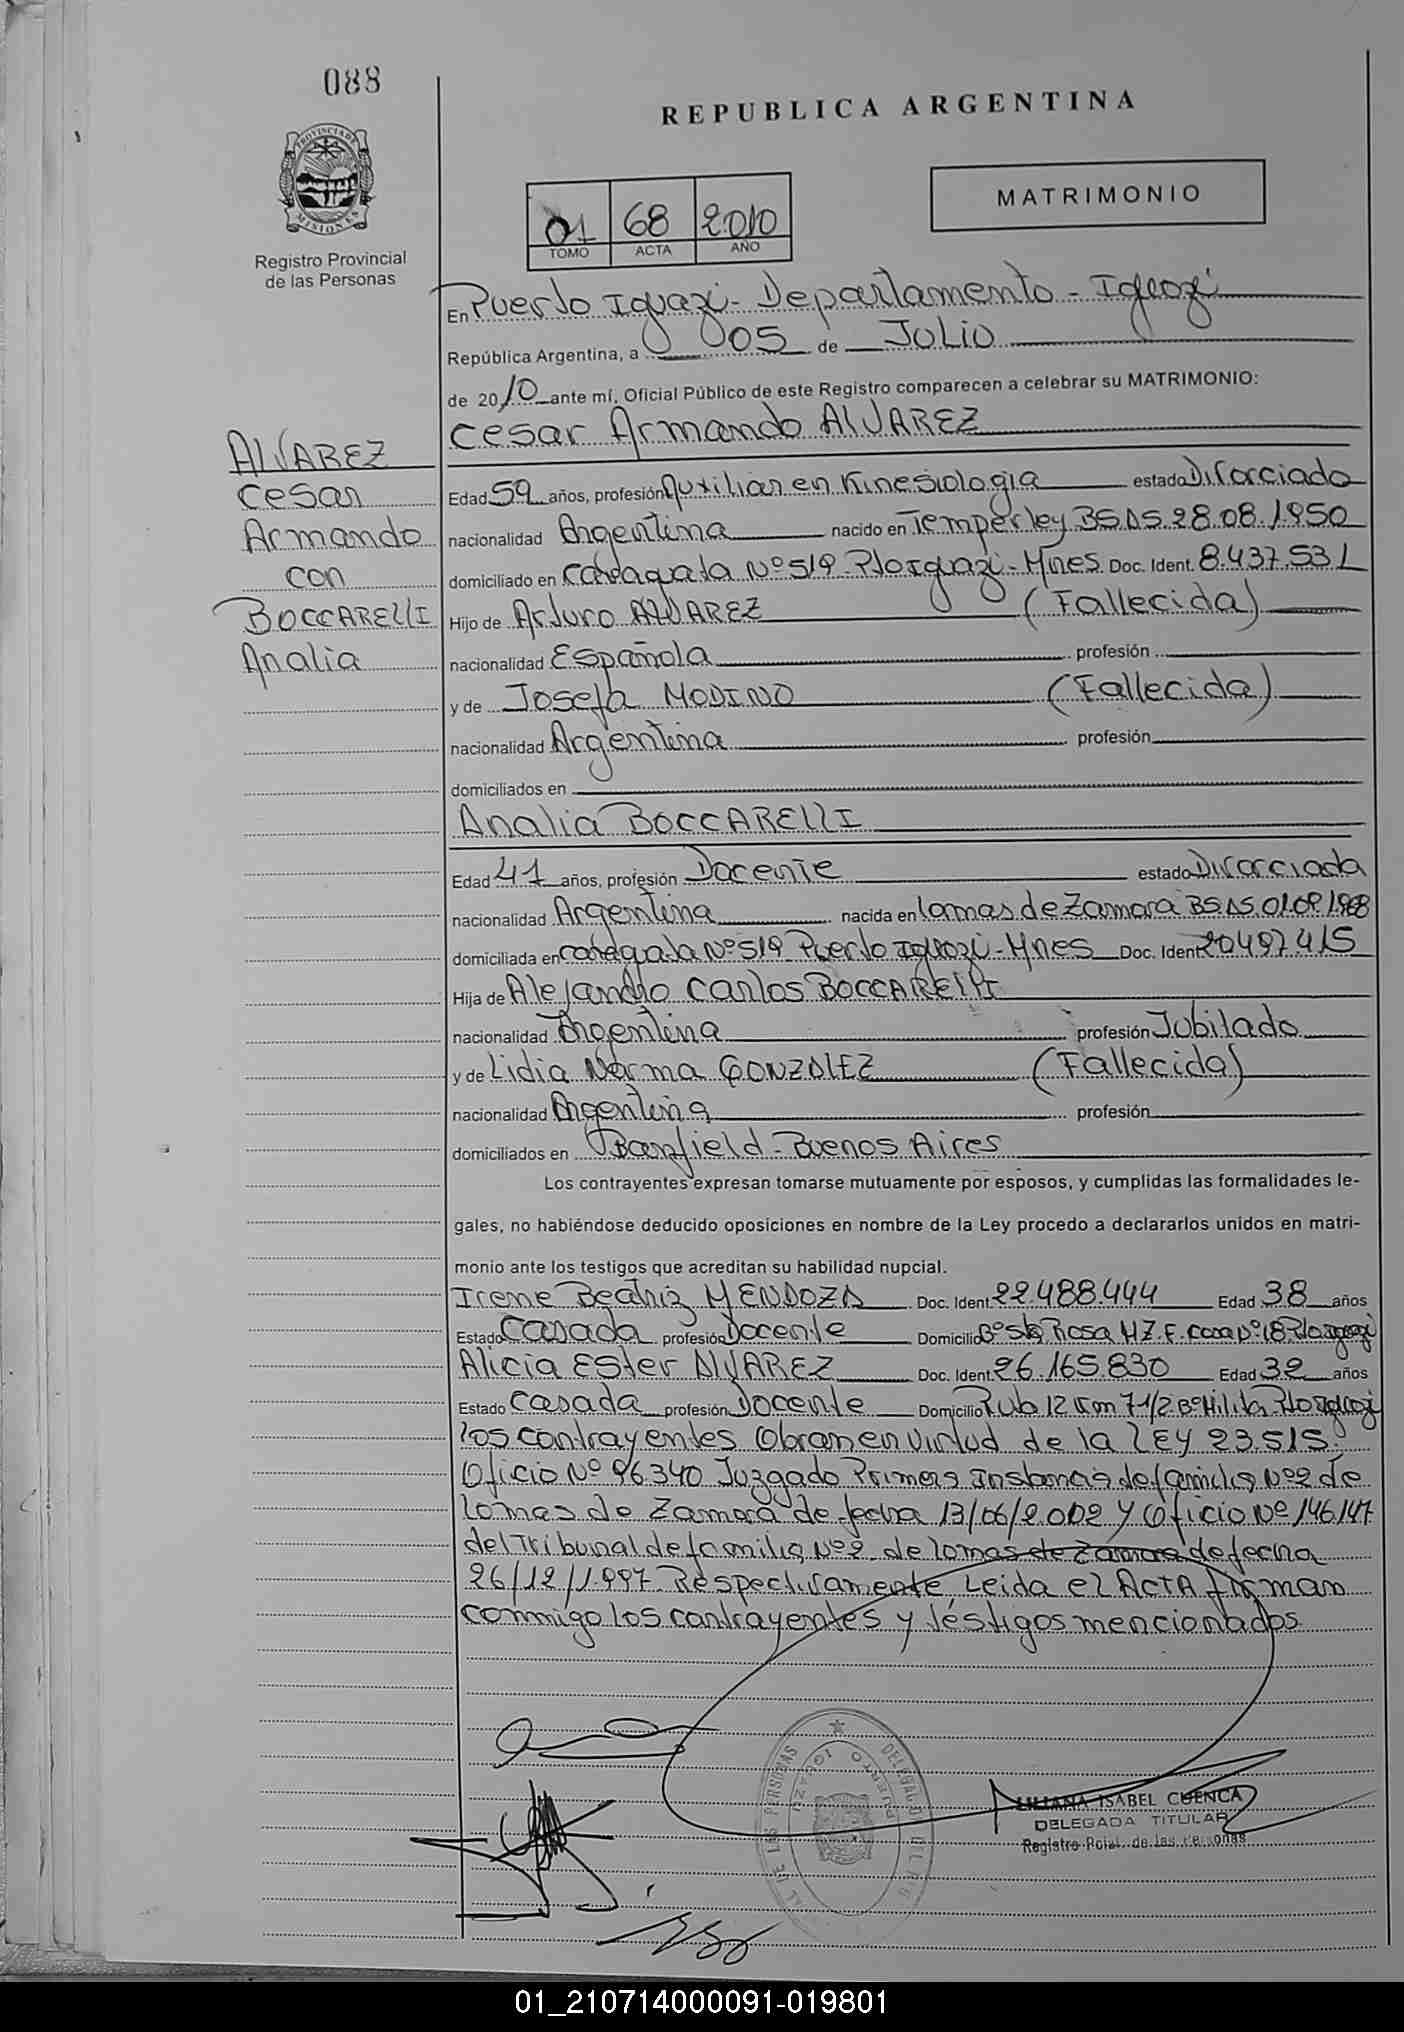 088
REPUBLICA ARGENTINA
PROVINCIA DE MISIONES
Registro Provincial
de las Personas
01 68 2010
TOMO ACTA AÑO
MATRIMONIO
En Puerto Iguazú - Departamento - Iguazú
República Argentina, a 05 de Julio
de 2010 ante mí, Oficial Público de este Registro comparecen a celebrar su MATRIMONIO:
ALVAREZ
Cesar
Armando
con
BOCCARELLI
Analia
Cesar Armando ALVAREZ
Edad 59 años, profesión Auxiliar en Kinesiologia estado Divorciado
nacionalidad Argentina nacido en Temperley BS.AS. 28.08.1.950
domiciliado en Nº 519 Pto Iguazú - Mnes. Doc. Ident. 8.437.531
Hijo de Arturo ALVAREZ (Fallecida)
nacionalidad Española profesión
y de Josefa MODINO (Fallecida)
nacionalidad Argentina profesión
domiciliados en
Analia BOCCARELLI
Edad 41 años, profesión Docente estado Divorciada
nacionalidad Argentina nacida en Lomas de Zamora BS.AS.
domiciliada en Nº 519 Puerto Iguazú - Mnes Doc. Ident. 20.497.415
Hija de Alejandro Carlos BOCCARELLI
nacionalidad Argentina profesión Jubilado
y de Lidia Norma GONZALEZ (Fallecida)
nacionalidad Argentina profesión
domiciliados en Banfield - Buenos Aires
Los contrayentes expresan tomarse mutuamente por esposos, y cumplidas las formalidades le-
gales, no habiéndose deducido oposiciones en nombre de la Ley procedo a declararlos unidos en matri-
monio ante los testigos que acreditan su habilidad nupcial.
Irene Beatriz MENDOZA Doc. Ident. 22.488.444 Edad 38 años
Estado Casada profesión Docente Domicilio Bº Sta Rosa MZ.F. Casa Nº 18 Pto Iguazú
Alicia Ester ALVAREZ Doc. Ident. 26.165.830 Edad 32 años
Estado Casada profesión Docente Domicilio Rut 12 Km 7 1/2 Bº Pto Iguazú
los contrayentes Obran en virtud de la LEY 23.515.
Oficio Nº 96.340 Juzgado Primera Instancia de familia Nº2 de
Lomas de Zamora de fecha 13/06/2.002 y Oficio Nº 146.147
del Tribunal de familia Nº2 de Lomas de Zamora de fecha
26/12/1.997. Respectivamente Leida el ACTA firman
conmigo los contrayentes y testigos mencionados
LILIANA ISABEL CUENCA
DELEGADA TITULAR
Registro Pcial. de las Personas
01_210714000091-019801